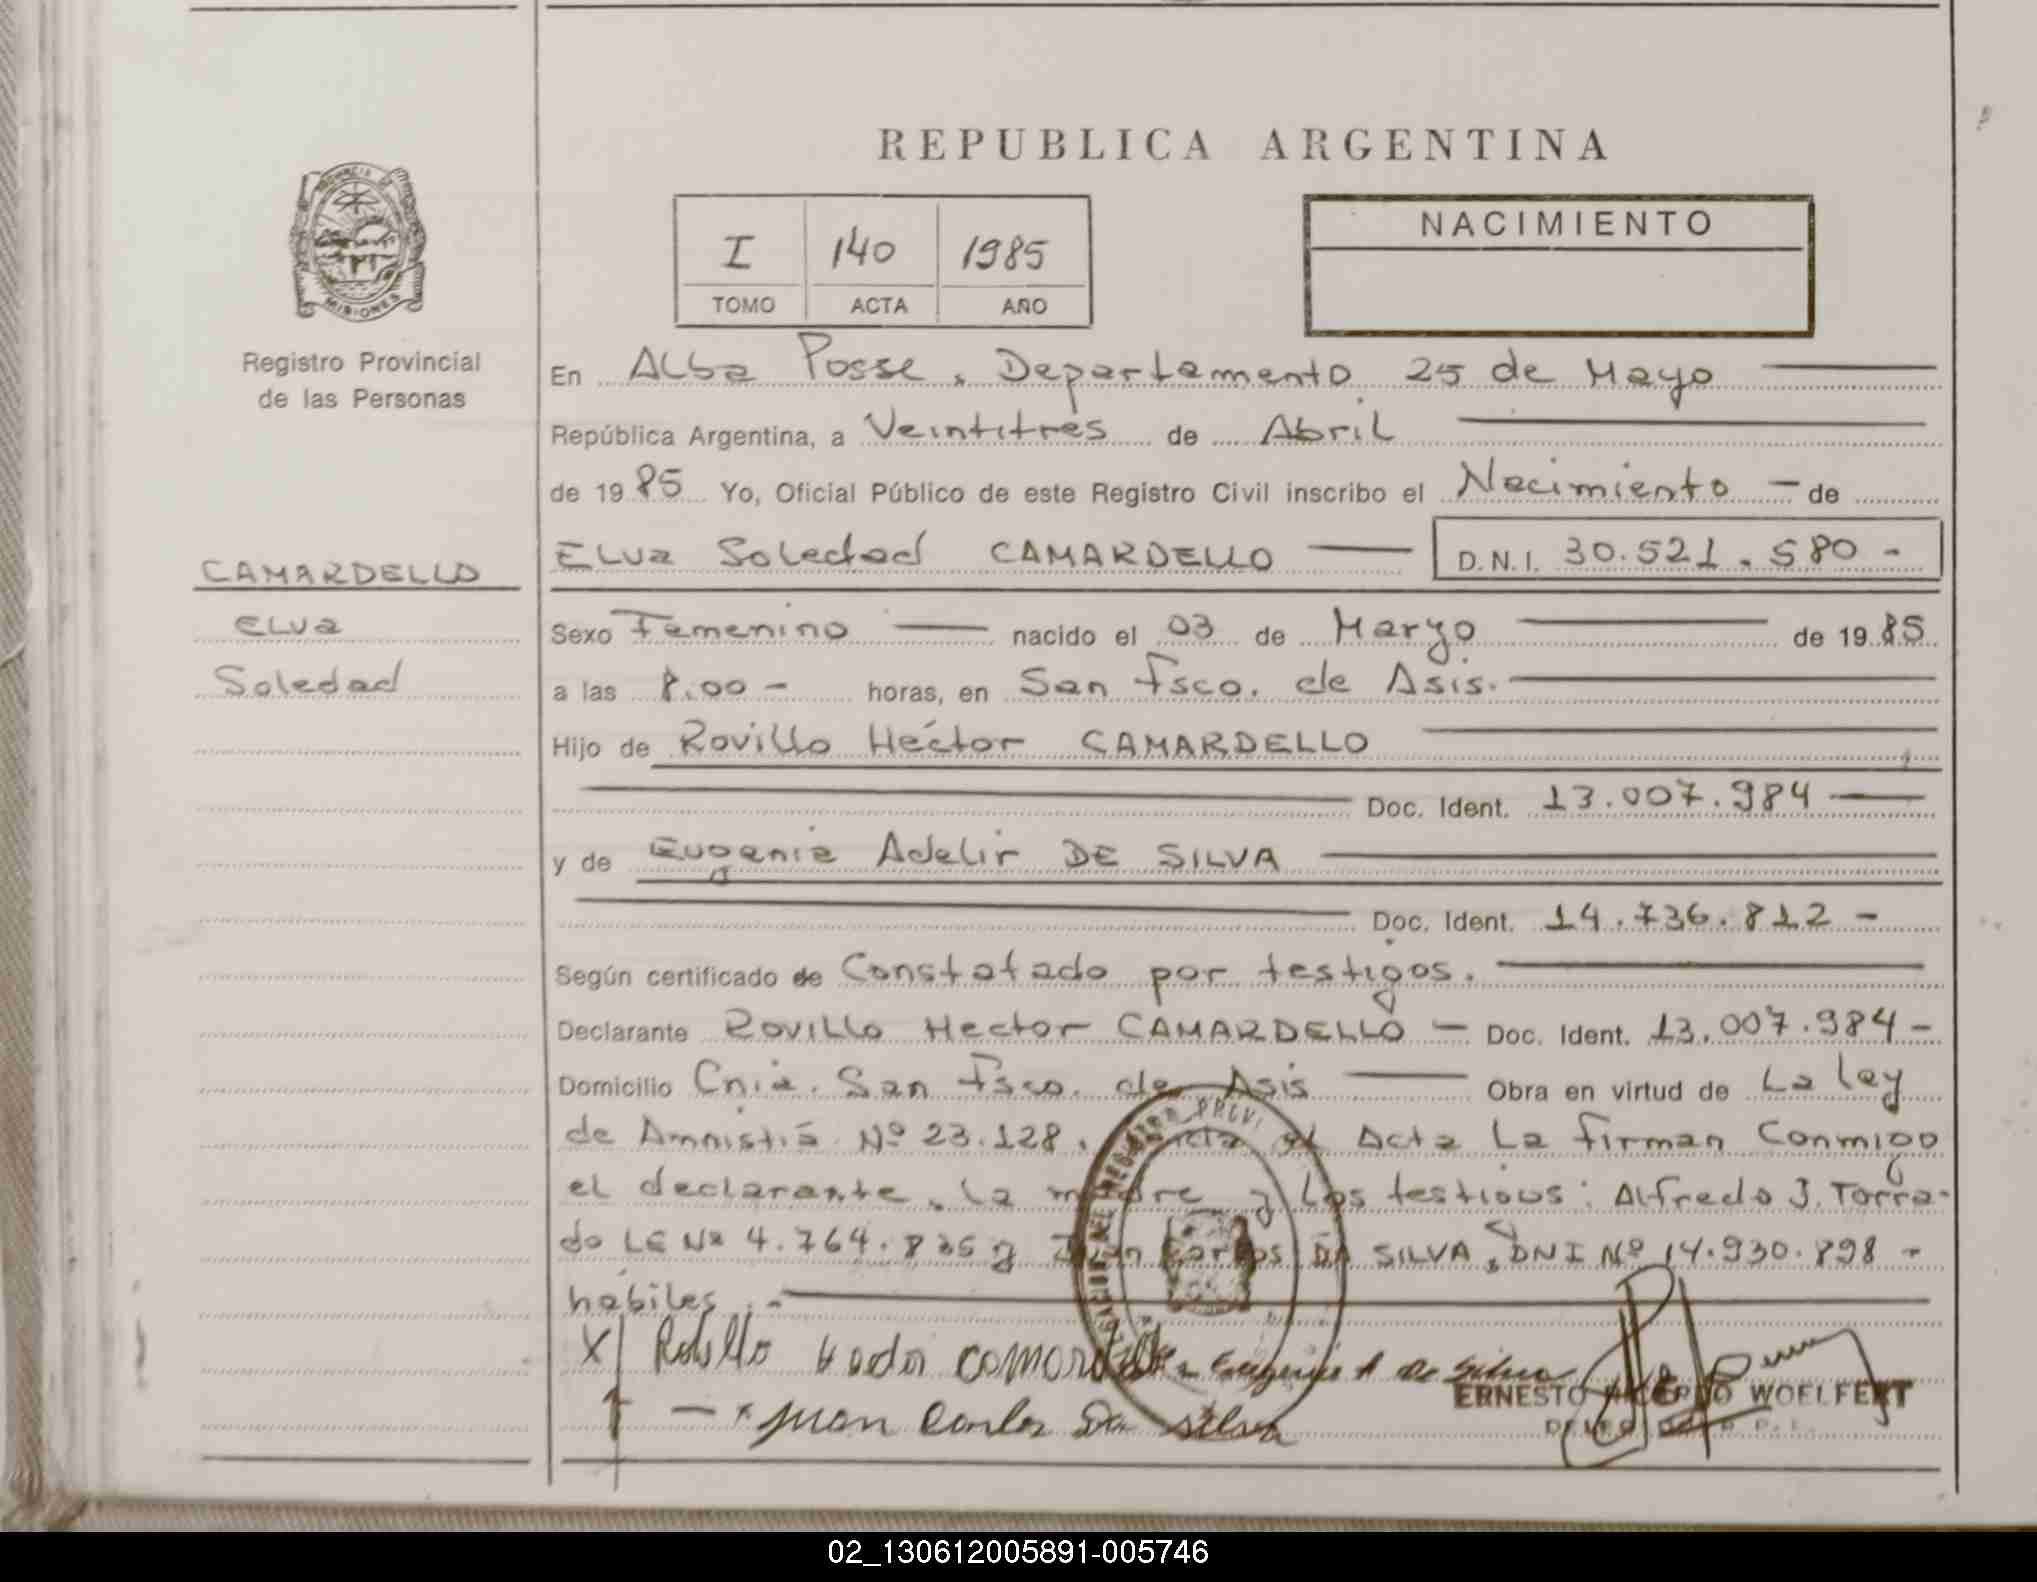 REPUBLICA ARGENTINA
PROVINCIA DE MISIONES
Registro Provincial
de las Personas
I 140 1985
TOMO ACTA AÑO
NACIMIENTO
En Alba Posse, Departamento 25 de Mayo
República Argentina, a Veintitrés de Abril
de 1985 Yo, Oficial Público de este Registro Civil inscribo el Nacimiento - de
CAMARDELLO
Elva
Soledad
Elva Soledad CAMARDELLO D.N.I. 30.521.580 -
Sexo Femenino nacido el 03 de Marzo de 1985
a las 8.00 - horas, en San Fsco. de Asis.
Hijo de Rovillo Héctor CAMARDELLO
Doc. Ident. 13.007.984
y de Eugenia Adelir DE SILVA
Doc. Ident. 14.736.812 -
Según certificado de Constatado por testigos.
Declarante Rovillo Hector CAMARDELLO - Doc. Ident. 13.007.984 -
Domicilio Cnia. San Fsco. de Asis Obra en virtud de La ley
de Amnistia Nº 23.128. el Acta La firman Conmigo
el declarante, la madre y los testigos: Alfredo J. Torra-
do LE Nº 4.764.835 y Juan Carlos DA SILVA, DNI Nº 14.930.898 -
habiles.-
X Rovillo camardello Eugenia A De Silva
- x Juan Carlos Da Silva
ERNESTO RICARDO WOELFERT
02_130612005891-005746